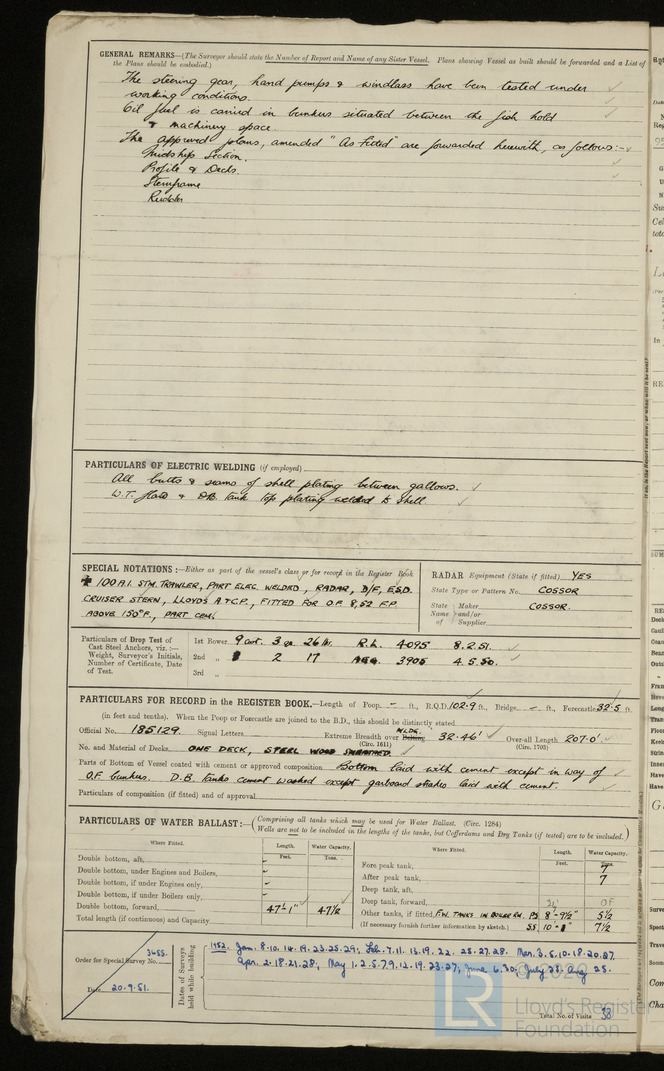 GENERAL REMARKS—(The Surveyor should state the Number of Report and Name of any Sister Vessel. Plans showing Vessel as built should be forwarded and a List of
the Plans should be embodied.)
The steering gear, hand pumps & windlass have been tested under
working conditions.
Oil fuel is carried in bunkers situated between the fish hold
& machinery space.
The approved plans, amended "As fitted" are forwarded herewith, as follows:-
Midship Section.
Profile & Decks.
Sternframe
Rudder
PARTICULARS OF ELECTRIC WELDING (if employed)
All butts & seams of shell plating between gallows.
W.T. flats & D.B. tank top plating welded to shell.
SPECIAL NOTATIONS:—Either as part of the vessel's class or for record in the Register Book
100 A.1. STM. TRAWLER, PART ELEC. WELDED, RADAR, D/F, E.S.D.
CRUISER STERN, LLOYD'S A & C.P., FITTED FOR O.F. 8,52 F.P.
ABOVE 150°F., PART CEM.
RADAR Equipment (State if fitted) YES
State Type or Pattern No. COSSOR
State Name of Maker and/or Supplier COSSOR.
Particulars of Drop Test of Cast Steel Anchors, viz.:— Weight, Surveyor's Initials, Number of Certificate, Date of Test.
1st Bower 9 cwt. 3 qr. 26 lb. R.L. 4095 8.2.51.
2nd „ 2 17 3905 4.5.50.
3rd „
PARTICULARS FOR RECORD in the REGISTER BOOK.—Length of Poop - ft., R.Q.D. 102.9 ft., Bridge - ft., Forecastle 32.5 ft.
(in feet and tenths). When the Poop or Forecastle are joined to the B.D., this should be distinctly stated
Official No. 185129. Signal Letters Extreme Breadth over Belting MLD. 32.46' Over-all Length 207.0'
(Circ. 1611) (Circ. 1703)
No. and Material of Decks. ONE DECK, STEEL WOOD SHEATHED.
Parts of Bottom of Vessel coated with cement or approved composition Bottom laid with cement except in way of
O.F. bunkers. D.B. tanks cement washed except garboard strakes laid with cement.
Particulars of composition (if fitted) and of approval
PARTICULARS OF WATER BALLAST:—(Comprising all tanks which may be used for Water Ballast. (Circ. 1284)
Wells are not to be included in the lengths of the tanks, but Cofferdams and Dry Tanks (if tested) are to be included.)
Where Fitted. Length. Water Capacity. Where Fitted. Length. Water Capacity.
Feet. Tons. Feet. Tons.
Double bottom, aft,
Double bottom, under Engines and Boilers,
Double bottom, if under Engines only,
Double bottom, if under Boilers only,
Double bottom, forward, 47'-1" 47½
Total length (if continuous) and Capacity
Fore peak tank, 7
After peak tank, 7
Deep tank, aft,
Deep tank, forward,
Other tanks, if fitted, F.W. TANKS IN BOILER RM. PS 8'-9½" 5½
(If necessary furnish further information by sketch.) SS 7½
Order for Special Survey No. 3455.
Date 20.9.51.
Dates of Surveys held while building
1952. Jan. 8.10.14.19.23.25.29; Feb. 7.11.13.19.22.25.27.28. Mar. 3.6.10.18.20.27
Apr. 2.18.21.28; May 1.2.5.7.9.12.19.23.27; June 6.30; July 28. Aug 25.
Total No. of Visits 38
© 2020
LR
Lloyd's Register
Foundation